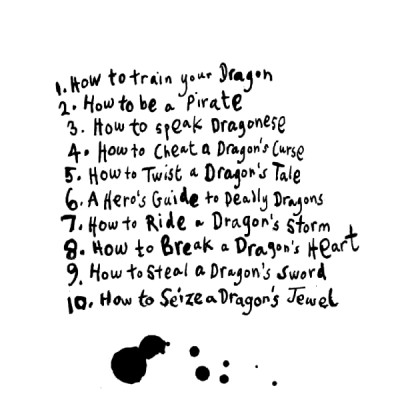 1. How to train your Dragon
2. How to be a Pirate
3. How to speak Dragonese
4. How to Cheat a Dragon's Curse
5. How to Twist a Dragon's Tale
6. A Hero's Guide to Deadly Dragons
7. How to Ride a Dragon's Storm
8. How to Break a Dragon's Heart
9. How to Steal a Dragon's Sword
10. How to Seize a Dragon's Jewel